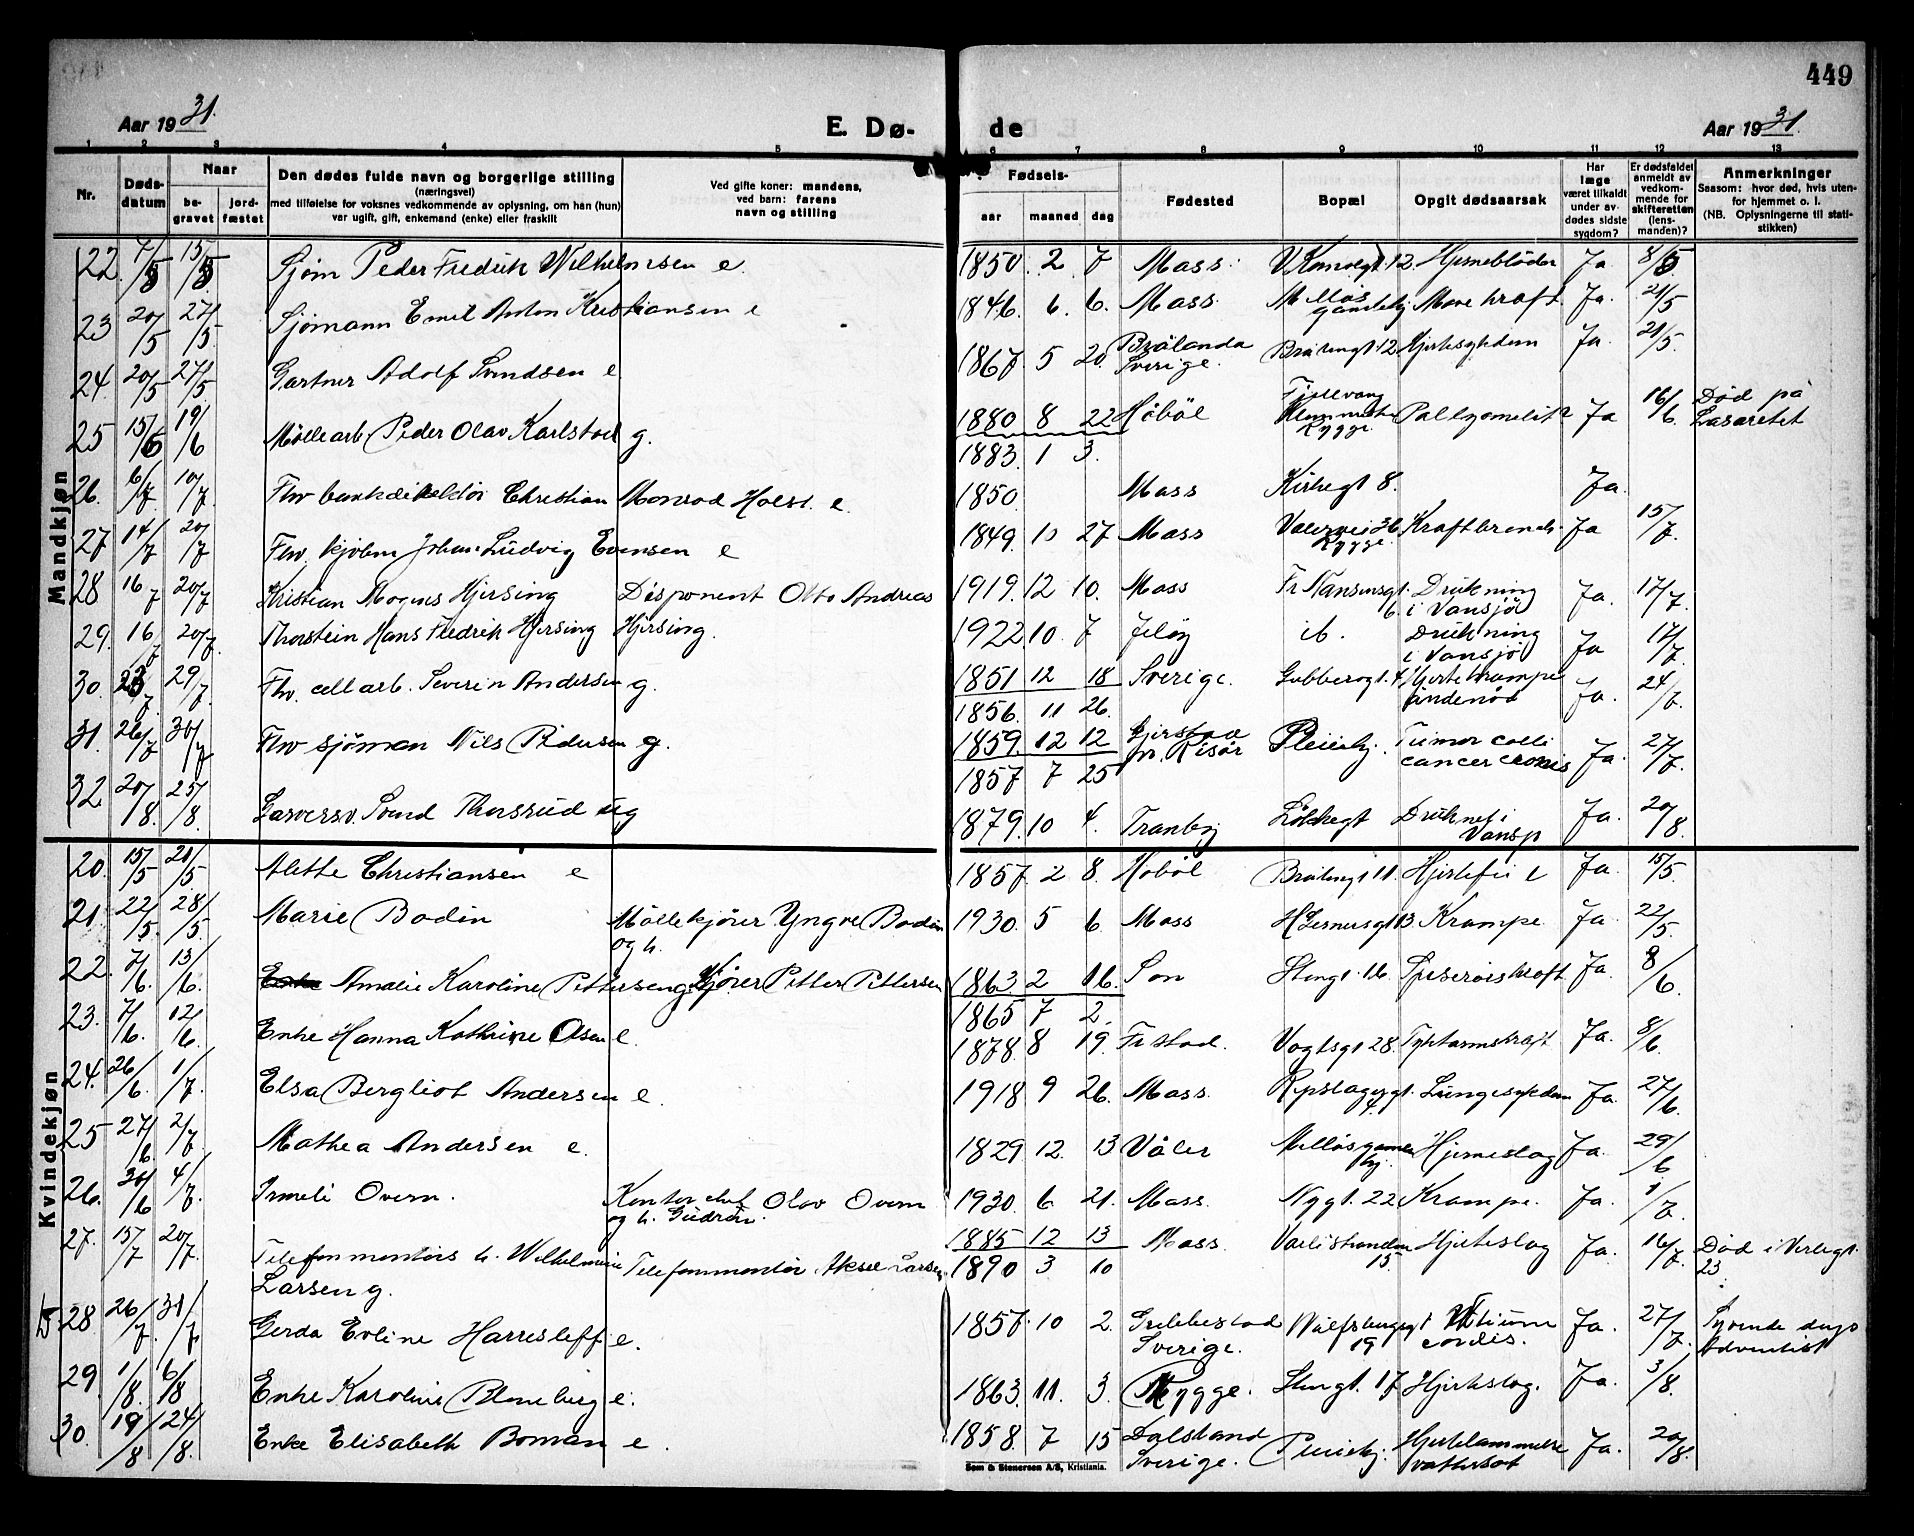 449
Aar 1931.
E. Dø-
de
Aar 1931.
1 2 3 4 5 6 7 8 9 10 11 12 13
Nr.
Døds-
datum
Naar
be-
gravet
jord-
fæstet
Den dødes fulde navn og borgerlige stilling
(næringsvei)
med tilføielse for voksnes vedkommende av oplysning, om han (hun)
var ugift, gift, enkemand (enke) eller fraskilt
Ved gifte koner: mandens,
ved barn: farens
navn og stilling
Fødsels-
aar maaned dag
Fødested
Bopæl
Opgit dødsaarsak
Har
læge
været tilkaldt
under av-
dødes sidste
sygdom?
Er dødsfaldet
anmeldt av
vedkom-
mende for
skifteretten
(lens-
manden)?
Anmerkninger
Saasom: hvor død, hvis uten-
for hjemmet o. l.
(NB. Oplysningerne til stati-
stikken)
Mandkjøn
22. 7/5 15/5 Sjøm Peder Fredrik Wilhelmsen e. 1850. 2 7 Moss. Hjerneblöder Ja 8/5
23 20/5 27/5. Sjømann Emil Anton Kristiansen e 1846. 6. 6. Moss. Mavekraft. Ja. 21/5
24 20/5 27/5 Gartner Adolf Svendsen e 1867. 5 20. Brålanda
Sverige. Hjertesykdom Ja 21/5.
25 15/6 19/6 Møllearb Peder Olav Karlstad g. 1880 8 22 Hobøl Rygge. Ja 16/6. Død på
Lasarettet
1883. 1 3.
26. 6/7 10/7. Fhv bankdirektör Christian Monrad Holst. e. 1850. Moss Kirkegt 8. Ja.
27 14/7 20/7 Fhv. Johan Ludvig Evensen e 1849. 10 27 Moss Rygge. Kraftbrends. Ja 15/7.
28 16/7 20/7 Kristian Mogens Hjersing Disponent Otto Andreas 1919. 12 10. Moss Fr Nansensgt.
6. Drukning
i Vansjö Ja. 17/7.
29. 16/7 20/7. Thorstein Hans Fredrik Hjersing Hjersing. 1922. 10. 7 Jeløy ib. Drukning
i Vansjö Ja 17/7.
30. 23/7 29/7. Fhv. cellarb. Severin Andersen g. 1851 12 18 Sverige. Hjertekrampe
åndenöd Ja. 24/7.
1856. 11 26.
31. 26/7 30/7 Fhv sjöman Nils Pedersen g. 1859. 12 12 Gjerstad
pr. Risör Tumor colli
cancer Ja. 27/7.
1857 7 25
32 20/8. 25/8. Garversv. Svend Thorsrud ug 1879. 10 4. Tranby Druknet i
Vansjø Ja. 20/8.
Kvindekjøn
20. 15/5 21/5 Alette Christiansen e 1857. 2 8. Hobøl Bråtengt 11. Hjertefeil Ja. 15/5.
21. 22/5. 28/5. Marie Bodin Møllekjörer Yngve Bodin
og h. 1930. 5 6. Moss Krampe. Ja 22/5.
22. 7/6. 13/6. Enke Amalie Karoline Pettersen g. Kjører Petter Pettersen 1863. 2 16. Son Stengt. 16 Spiserörskraft Ja. 8/6.
1865 7 2.
23. 7/6. 12/6. Enke Hanna Kathrine Olsen e. 1878. 8 19. Frstad. Vogtsgt 28. Tyktarmskraft Ja. 8/6.
24. 26/6 1/7. Elsa Bergliot Andersen e. 1918 9 26. Moss. Lungesykdom Ja. 27/6.
25 27/6 2/7 Mathea Andersen e. 1829 12. 13 Våler Hjerneslag Ja. 29/6
26. 30/6 4/7. Irmeli Overn. Olav Overn
og h. Gudrun. 1930. 6 21. Moss. Nygt. 22 Krampe. Ja. 1/7.
27. 15/7 20/7. Telefonmontörs h. Wilhelmine
Larsen g. Telefonmontör Aksel Larsen 1885 12 13 Moss. Varlistranden
15. Hjerteslag Ja. 16/7. Død i Verlegt.
23
1890 3 10
28 26/7 31/7 Gerda Evline Harrisleff e. 1857. 10 2. Grebbestad
Sverige. Wulfsbergsgt
19 Vitium
cordis. Ja. 27/7. Syvende dags
Adventist
29. 1/8. 6/8 Enke Karoline Blomberg e. 1863. 11. 3. Rygge. Stengt. 17 Hjerteslag. Ja. 3/8.
30. 19/8 24/8. Enke Elisabeth Boman e. 1858. 7 15 Dalsland
Sverige. Hjertelammelse
vattersot Ja. 20/8.
Sem & Stenersen A/S, Kristiania.